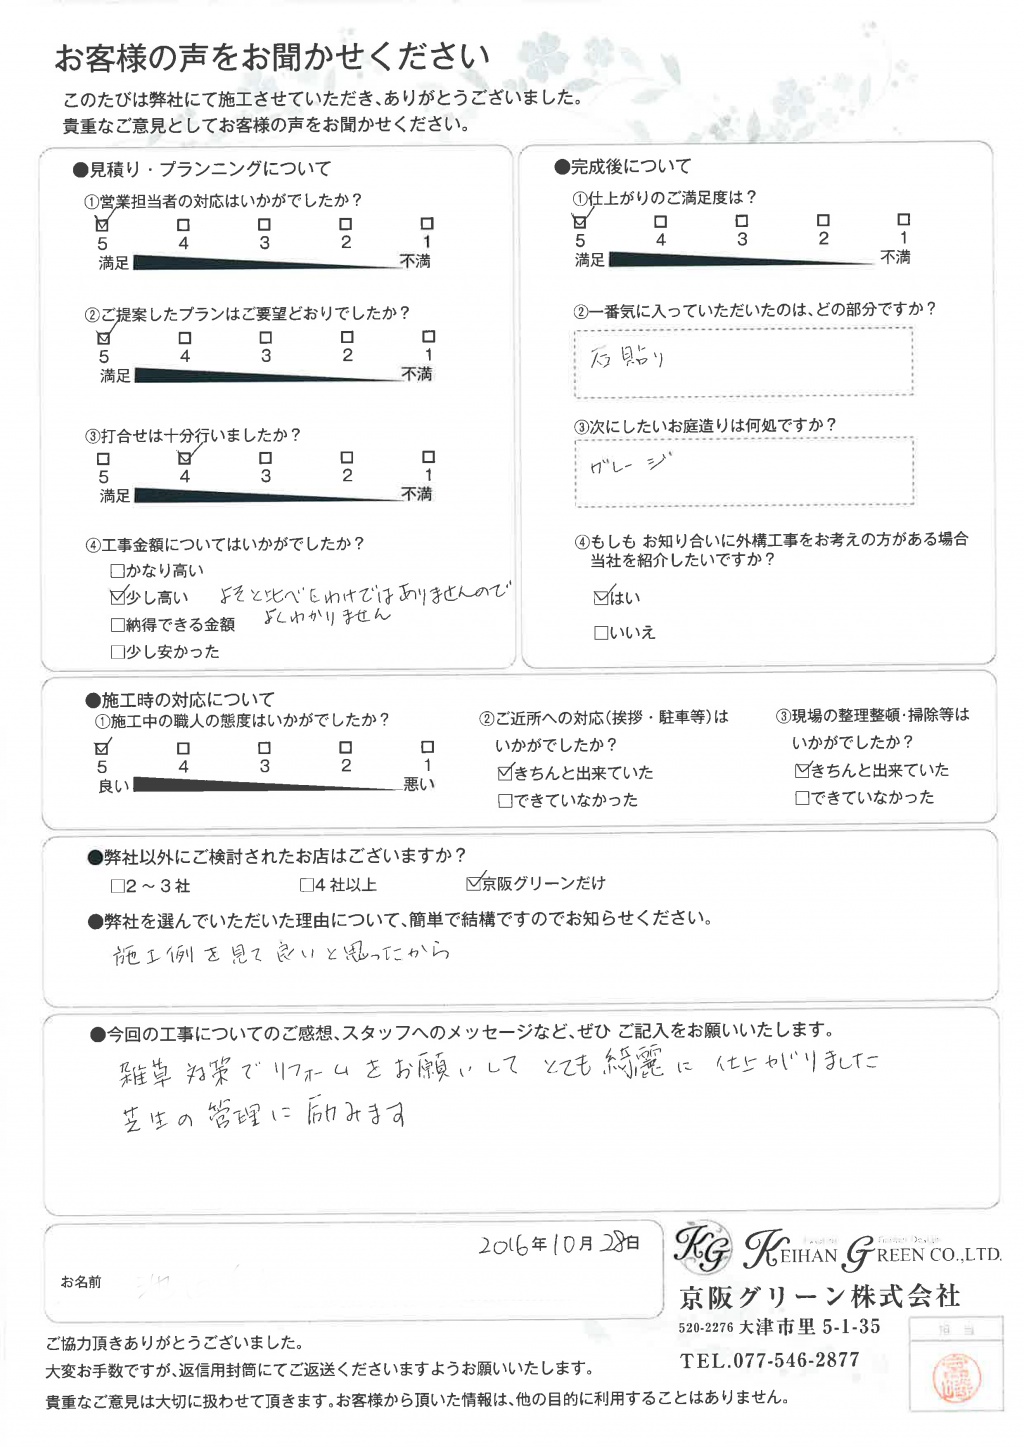 お客様の声をお聞かせください
このたびは弊社にて施工させていただき、ありがとうございました。
貴重なご意見としてお客様の声をお聞かせください。
●見積り・プランニングについて
①営業担当者の対応はいかがでしたか？
☑ □ □ □ □
5 4 3 2 1
満足 不満
②ご提案したプランはご要望どおりでしたか？
☑ □ □ □ □
5 4 3 2 1
満足 不満
③打合せは十分行いましたか？
□ ☑ □ □ □
5 4 3 2 1
満足 不満
④工事金額についてはいかがでしたか？
□かなり高い
☑少し高い よそと比べたわけではありませんので
よくわかりません
□納得できる金額
□少し安かった
●完成後について
①仕上がりのご満足度は？
☑ □ □ □ □
5 4 3 2 1
満足 不満
②一番気に入っていただいたのは、どの部分ですか？
石貼り
③次にしたいお庭造りは何処ですか？
ガレージ
④もしも お知り合いに外構工事をお考えの方がある場合
当社を紹介したいですか？
☑はい
□いいえ
●施工時の対応について
①施工中の職人の態度はいかがでしたか？
☑ □ □ □ □
5 4 3 2 1
良い 悪い
②ご近所への対応（挨拶・駐車等）は
いかがでしたか？
☑きちんと出来ていた
□できていなかった
③現場の整理整頓・掃除等は
いかがでしたか？
☑きちんと出来ていた
□できていなかった
●弊社以外にご検討されたお店はございますか？
□2～3社 □4社以上 ☑京阪グリーンだけ
●弊社を選んでいただいた理由について、簡単で結構ですのでお知らせください。
施工例を見て良いと思ったから
●今回の工事についてのご感想、スタッフへのメッセージなど、ぜひ ご記入をお願いいたします。
雑草対策でリフォームをお願いしてとても綺麗に仕上がりました
芝生の管理に励みます
2016年10月28日
お名前
KG KEIHAN GREEN CO.,LTD.
京阪グリーン株式会社
520-2276 大津市里 5-1-35
TEL.077-546-2877
担当
ご協力頂きありがとうございました。
大変お手数ですが、返信用封筒にてご返送くださいますようお願いいたします。
貴重なご意見は大切に扱わせて頂きます。お客様から頂いた情報は、他の目的に利用することはありません。